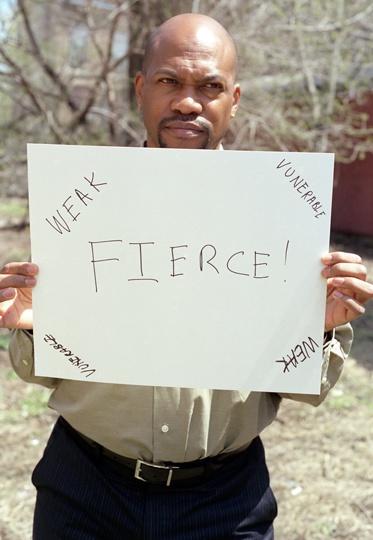 WEAK
VUNERABLE
FIERCE!
VUNERABLE
WEAK